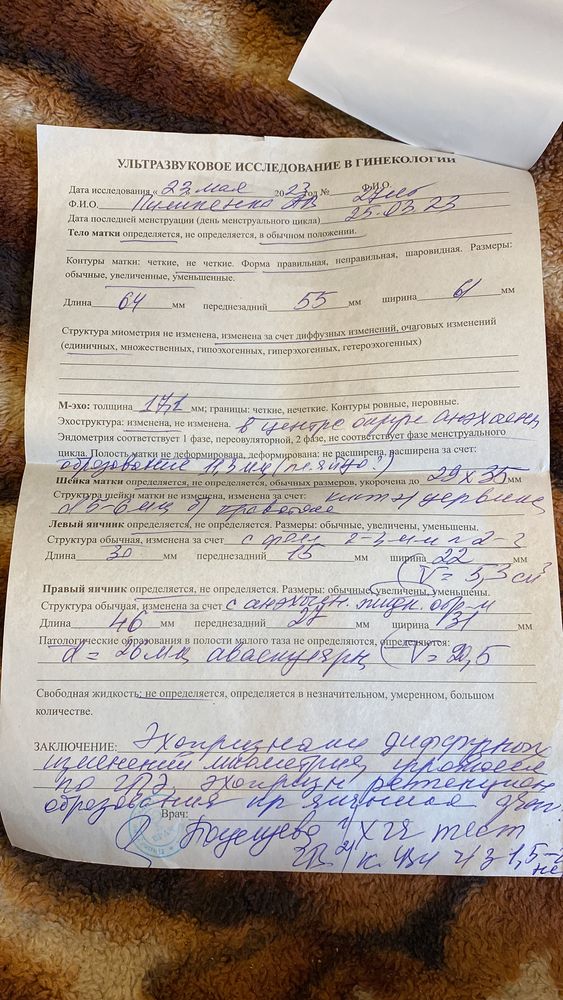 УЛЬТРАЗВУКОВОЕ ИССЛЕДОВАНИЕ В ГИНЕКОЛОГИИ
Дата исследования « 23 » мая 2023 год № Ф.И.О.
Ф.И.О. АВ 27 лет
Дата последней менструации (день менструального цикла) 25.03.23
Тело матки определяется, не определяется, в обычном положении.
Контуры матки: четкие, не четкие. Форма правильная, неправильная, шаровидная. Размеры:
обычные, увеличенные, уменьшенные.
Длина 64 мм переднезадний 55 мм ширина 61 мм
Структура миометрия не изменена, изменена за счет диффузных изменений, очаговых изменений
(единичных, множественных, гипоэхогенных, гиперэхогенных, гетероэхогенных)
М-эхо: толщина 17,1 мм; границы: четкие, нечеткие. Контуры ровные, неровные.
Эхоструктура: изменена, не изменена. в центре округл анэхоген
Эндометрия соответствует 1 фазе, переовуляторной, 2 фазе, не соответствует фазе менструального
цикла. Полость матки не деформирована, деформирована: не расширена, расширена за счет:
образование 11,3 мм (пл. яйцо?)
Шейка матки определяется, не определяется, обычных размеров, укорочена до 29 х 35 мм
Структура шейки матки не изменена, изменена за счет: кист эндоцервикс
d 5-6 мм б/ кровотока
Левый яичник определяется, не определяется. Размеры: обычные, увеличены, уменьшены.
Структура обычная, изменена за счет с фолл 2-3 мм
Длина 30 мм переднезадний 15 мм ширина 22 мм
V = 5,3 см³
Правый яичник определяется, не определяется. Размеры: обычные, увеличены, уменьшены.
Структура обычная, изменена за счет с анэхоген. жидк. обр-м
Длина 46 мм переднезадний 27 мм ширина 31 мм
Патологические образования в полости малого таза не определяются, определяются:
d = 26 мм аваскулярн V = 20,5
Свободная жидкость: не определяется, определяется в незначительном, умеренном, большом
количестве.
ЗАКЛЮЧЕНИЕ: Эхопризнаки диффузных
изменений миометрия,
по эхопризн ретенцион
образования пр яичника
Врач: ХГЧ тест
к. УЗИ ч/з 1,5-2